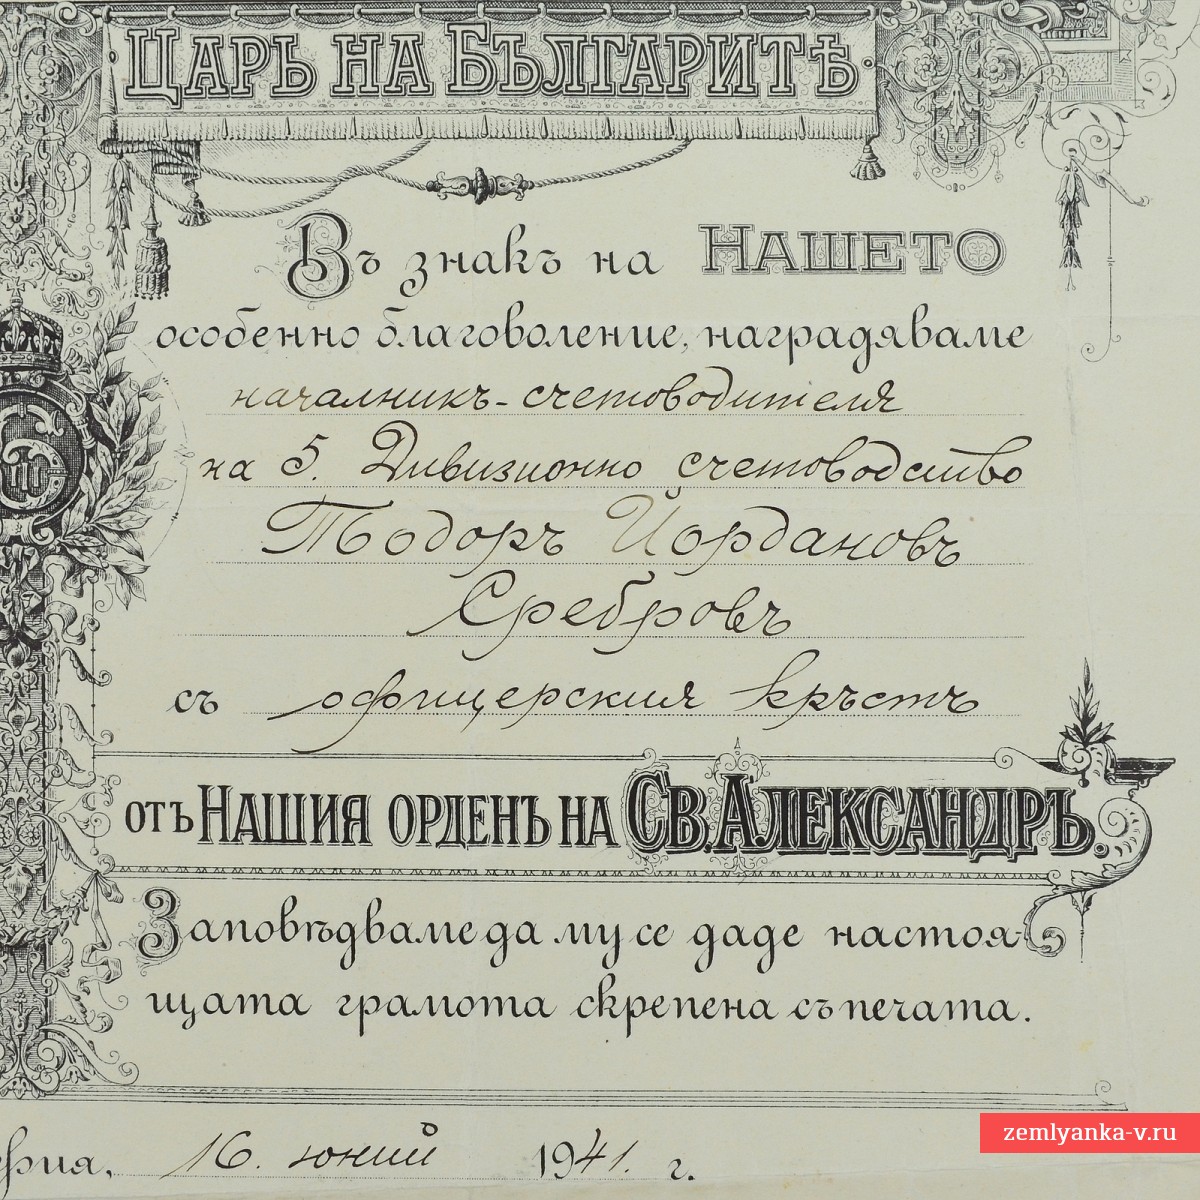 ЦАРЬ НА БЪЛГАРИТѢ
Въ знакъ на НАШЕТО
особенно благоволение, наградяваме
началникъ-счетоводителя
на 5. Дивизионно счетоводство
Тодоръ Йордановъ
Сребровъ
съ офицерския кръстъ
отъ НАШИЯ ОРДЕНЪ НА СВ. АЛЕКСАНДРЪ.
Заповѣдваме да му се даде настоя-
щата грамота скрепена съ печата.
16. юний 1941. г.
zemlyanka-v.ru